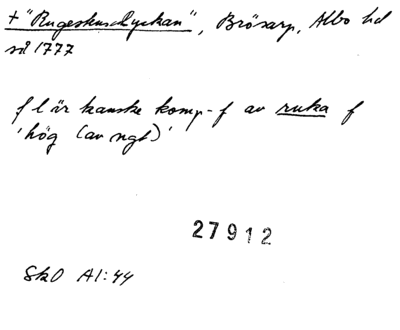 + "Rugeskuslyckan", Brösarp, Albo hd
så 1777
f l är kanske komp-f av ruka f
'hög (av ngt)'
27912
SkO A1:44